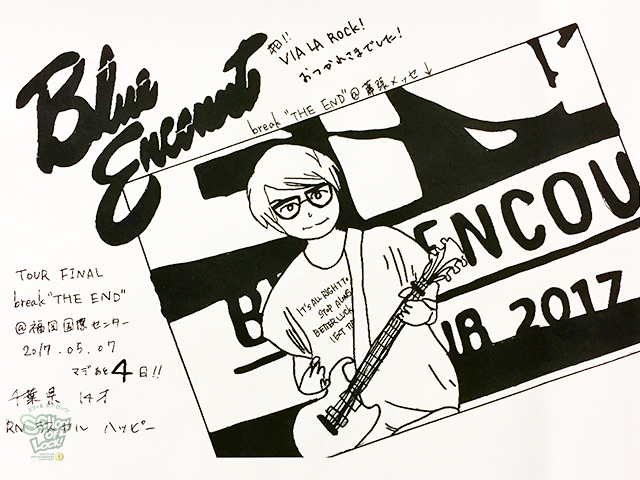 Blue
Encount
昨日!!
VIA LA Rock!
おつかれさまでした!
break "THE END"@幕張メッセ↓
ENCOU
UR 2017
IT'S ALL RIGHT TO
STOP ALONG
BETTER LUCK
TOUR FINAL
break "THE END"
@福岡国際センター
2017.05.07
マデあと4日!!
千葉県 14才
RN ラスカル ハッピー
スクール・オブ・ロック!
SCHOOL
OF
LOCK!